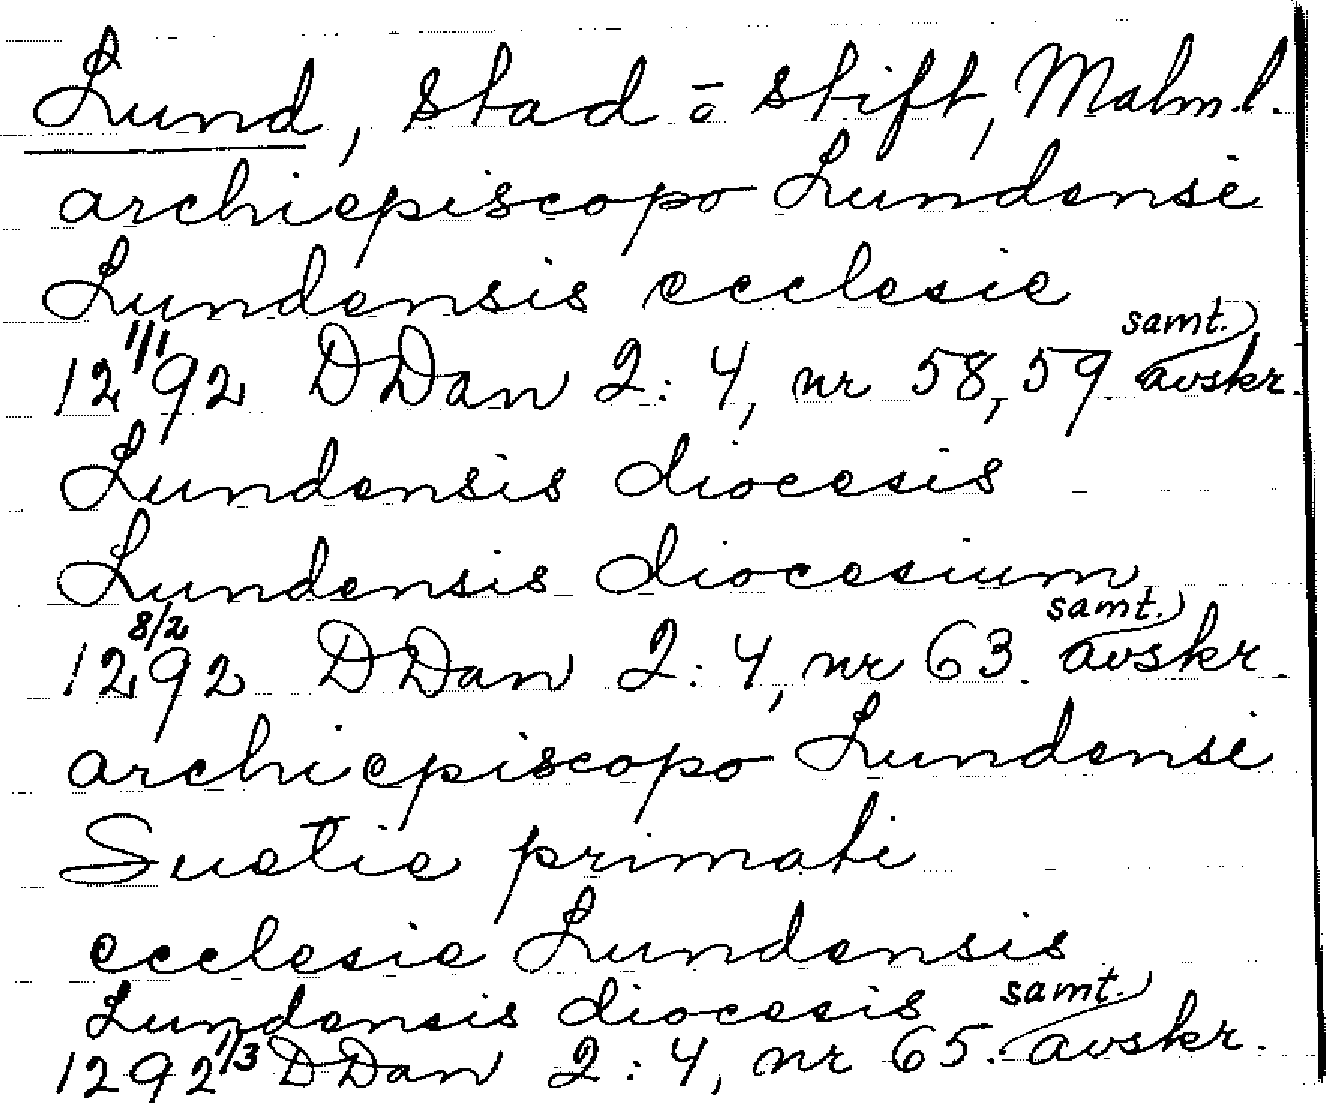 Lund, stad o stift, Malm.l.
archiepiscopo Lundensi
Lundensis ecclesie
1292 1/1 DDan 2:4, nr 58, 59 samt. avskr.
Lundensis diocesis
Lundensis diocesium
1292 8/2 DDan 2:4, nr 63. samt. avskr.
archiepiscopo Lundensi
Suetie primati
ecclesie Lundensis
Lundensis diocesis
1292 1/3 DDan 2:4, nr 65. samt. avskr.